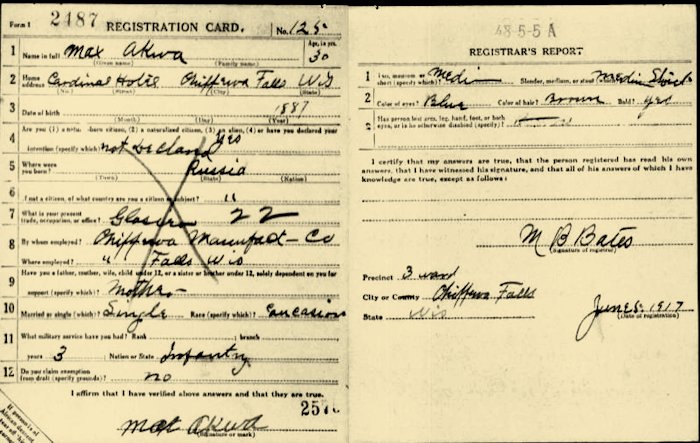 Form 1 2487 REGISTRATION CARD. No. 125
1 Name in full Max Akwa Age, in yrs. 30
(Given name) (Family name)
2 Home address Cardinal Hotel Chippewa Falls Wis
(No.) (Street) (City) (State)
3 Date of birth 1887
(Month) (Day) (Year)
4 Are you (1) a natural-born citizen, (2) a naturalized citizen, (3) an alien, (4) or have you declared your
intention (specify which)? not Declared yes
5 Where were you born? Russia
(Town) (State) (Nation)
6 If not a citizen, of what country are you a citizen or subject? "
7 What is your present trade, occupation, or office? 22
8 By whom employed? Chippewa Manufact - Co
Where employed? " Falls Wis
9 Have you a father, mother, wife, child under 12, or a sister or brother under 12, solely dependent on you for
support (specify which)? Mother -
10 Married or single (which)? Single Race (specify which)? Caucasion
11 What military service have you had? Rank branch
years 3 Nation or State Infantry
12 Do you claim exemption from draft (specify grounds)? no
I affirm that I have verified above answers and that they are true.
257
Max Akwa
(Signature or mark)
If person is of African descent,
48-5-5 A
REGISTRAR'S REPORT
1 Tall, medium, or short (specify which)? Medi Slender, medium, or stout (which)?
2 Color of eyes? Blue Color of hair? Brown Bald? yes
3 Has person lost arm, leg, hand, foot, or both
eyes, or is he otherwise disabled (specify)?
I certify that my answers are true, that the person registered has read his own
answers, that I have witnessed his signature, and that all of his answers of which I have
knowledge are true, except as follows:
M B Bates
(Signature of registrar)
Precinct 3 ward
City or County Chippewa Falls
State Wis
June 5-1917
(Date of registration)